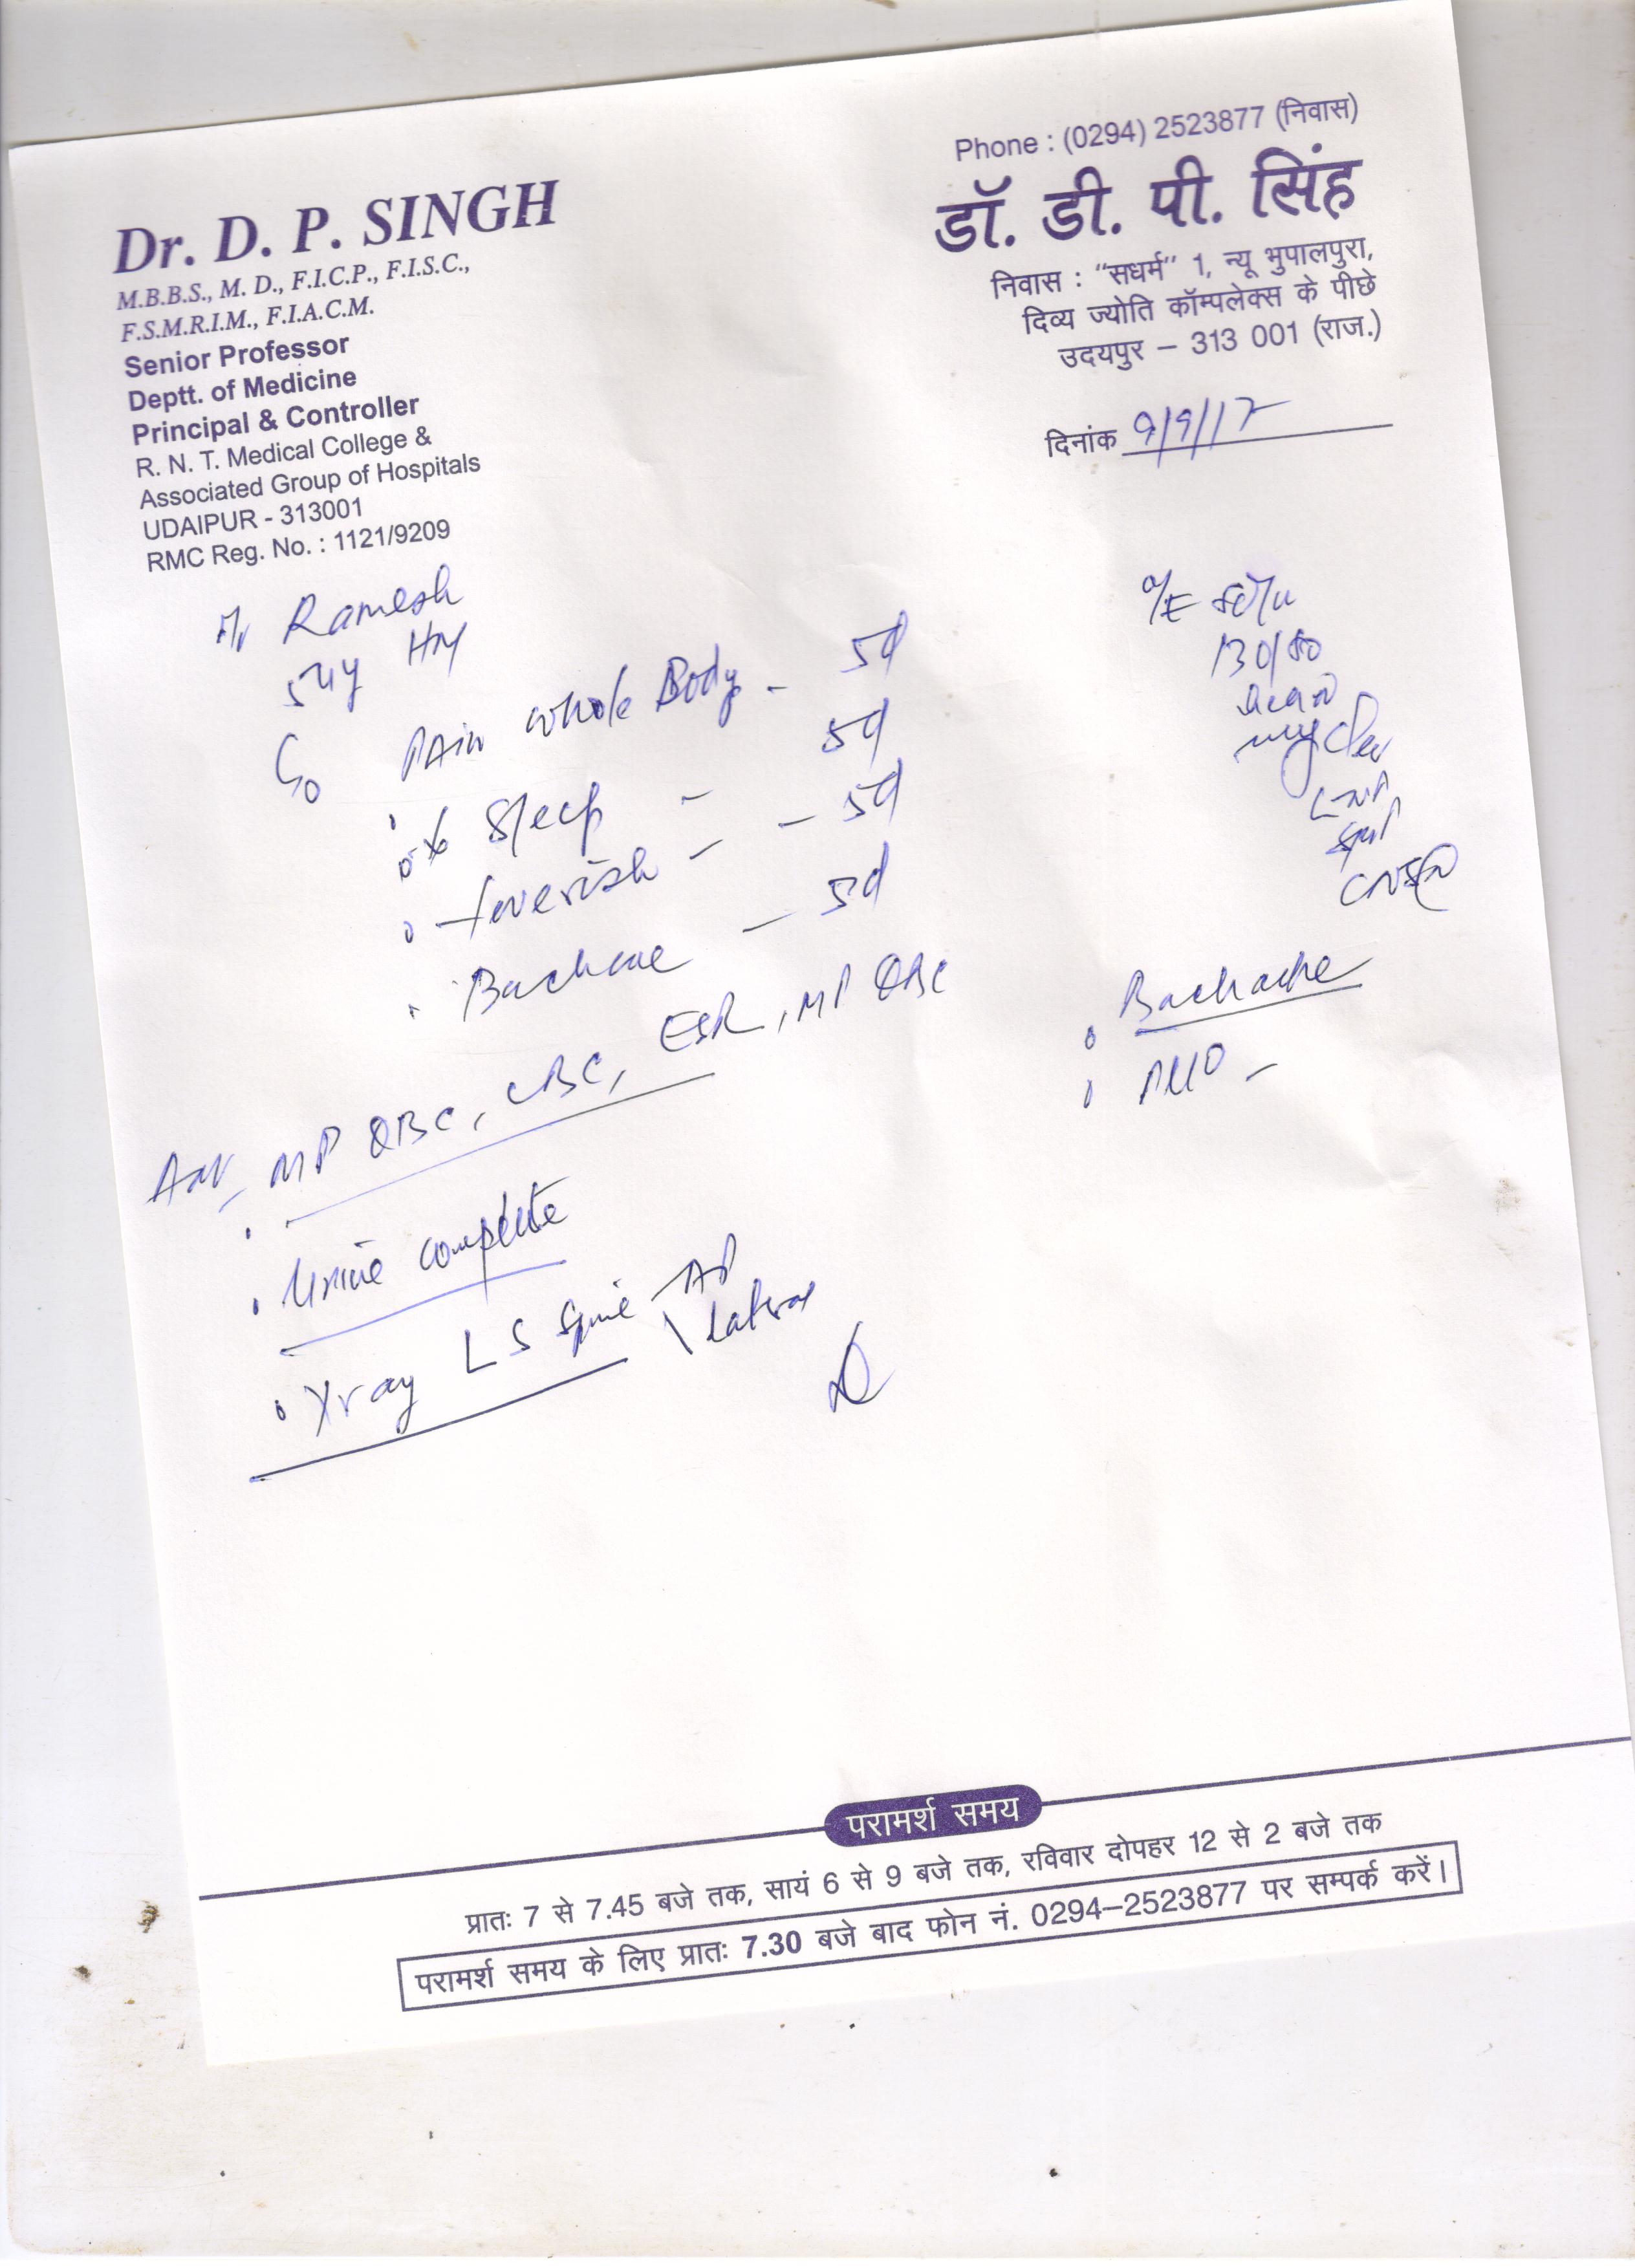 Phone : (0294) 2523877 (निवास)
Dr. D. P. SINGH
M.B.B.S., M. D., F.I.C.P., F.I.S.C.,
F.S.M.R.I.M., F.I.A.C.M.
Senior Professor
Deptt. of Medicine
Principal & Controller
R. N. T. Medical College &
Associated Group of Hospitals
UDAIPUR - 313001
RMC Reg. No. : 1121/9209
डॉ. डी. पी. सिंह
निवास : “सधर्म” 1, न्यू भुपालपुरा,
दिव्य ज्योति कॉम्पलेक्स के पीछे
उदयपुर – 313 001 (राज.)
दिनांक 9/9/17
Ramesh
54y HM
C/o PAin whole Body - 5d
Sleep - 5d
feverish - - 5d
- 5d
Adv MP QBC, CBC, ESR, MP QBC
Urine complete
Xray LS Spine AP
lateral
O/E 80/m
130/80
Backache
PUO -
परामर्श समय
प्रातः 7 से 7.45 बजे तक, सायं 6 से 9 बजे तक, रविवार दोपहर 12 से 2 बजे तक
परामर्श समय के लिए प्रातः 7.30 बजे बाद फोन नं. 0294–2523877 पर सम्पर्क करें।